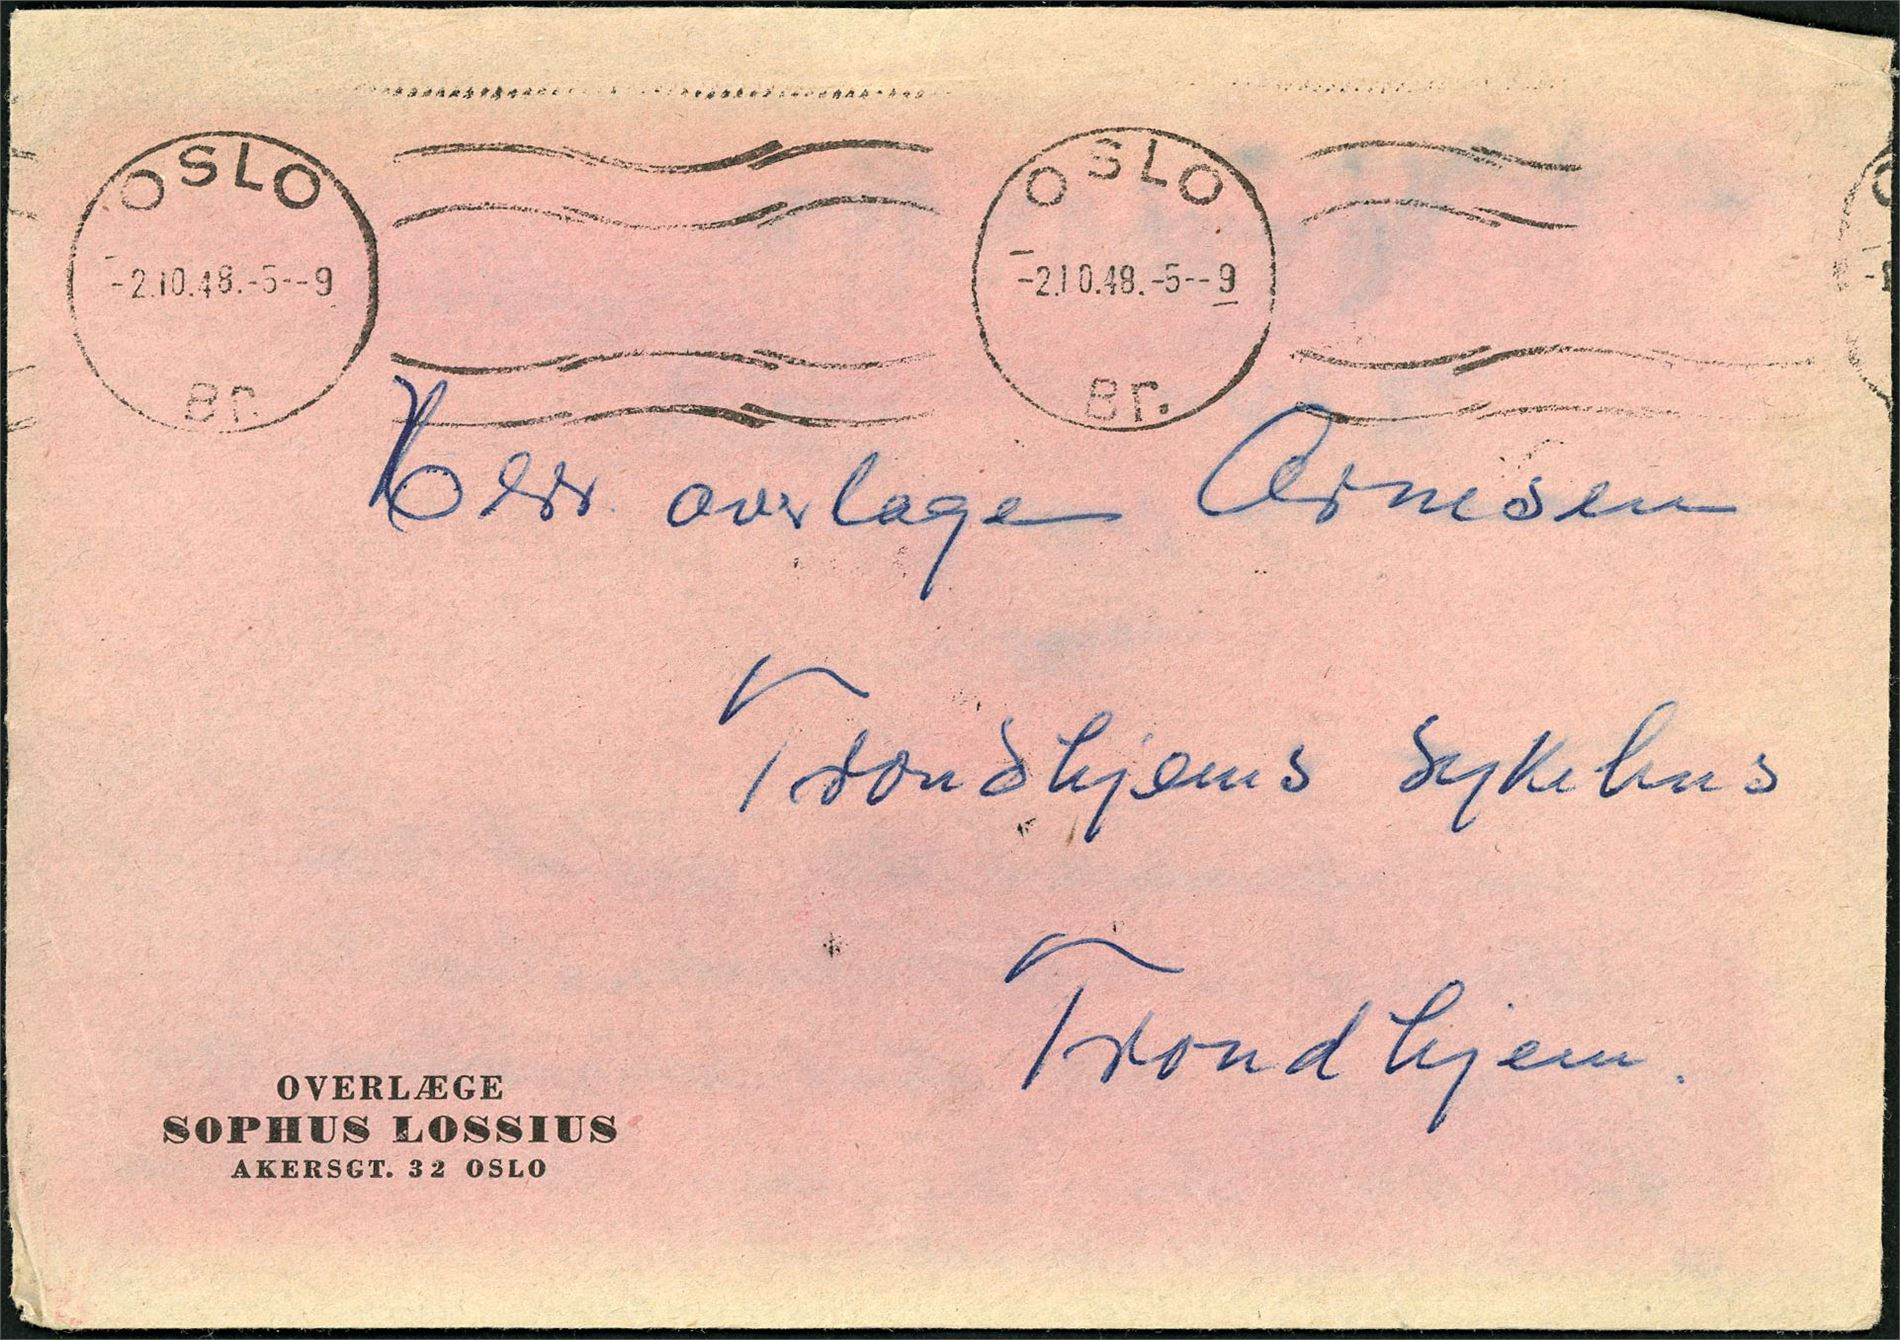 OSLO
-2.10.48.-5--9
Br.
OSLO
-2.10.48.-5--9
Br.
Herr overlæge Arnesen
Trondhjems Sykehus
Trondhjem.
OVERLÆGE
SOPHUS LOSSIUS
AKERSGT. 32 OSLO